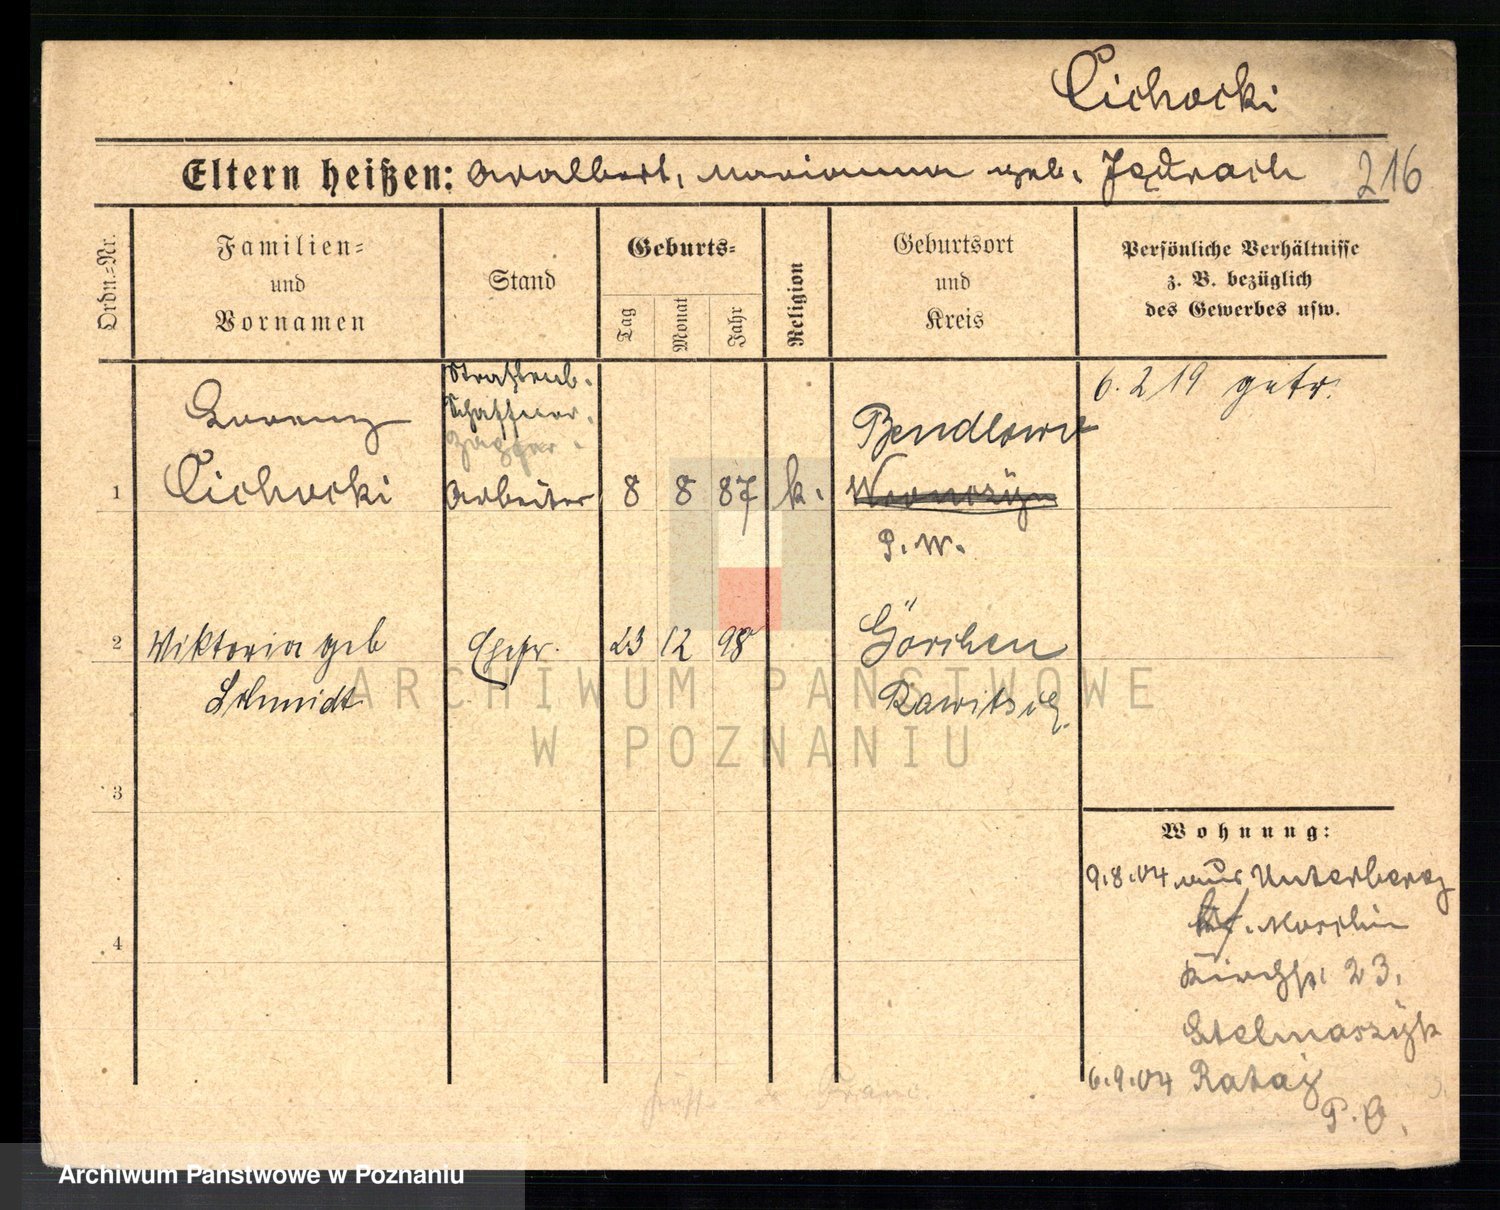 Cichocki
Eltern heißen: Adalbert, Marianna geb. Jądrach 216
Ordn.=Nr.
Familien=
und
Vornamen
Stand
Geburts=
Tag
Monat
Jahr
Religion
Geburtsort
und
Kreis
Persönliche Verhältnisse
z. B. bezüglich
des Gewerbes usw.
6.2 19 getr.
Straßenb.
Schaffner.
1 Lorenz
Cichocki
Arbeiter 8 8 87 k.
Bendlewo
P. W.
2 Viktoria geb
Schmidt
Ehefr. 23 12 98
Görchen
Rawitsch
3
4
Wohnung:
9.8.04 aus Unterberg
Kr. Moschin
Kirchstr. 23.
Stelmaszyk
6.9.04 Rataj
P. O.
ARCHIWUM PAŃSTWOWE
W POZNANIU
Archiwum Państwowe w Poznaniu